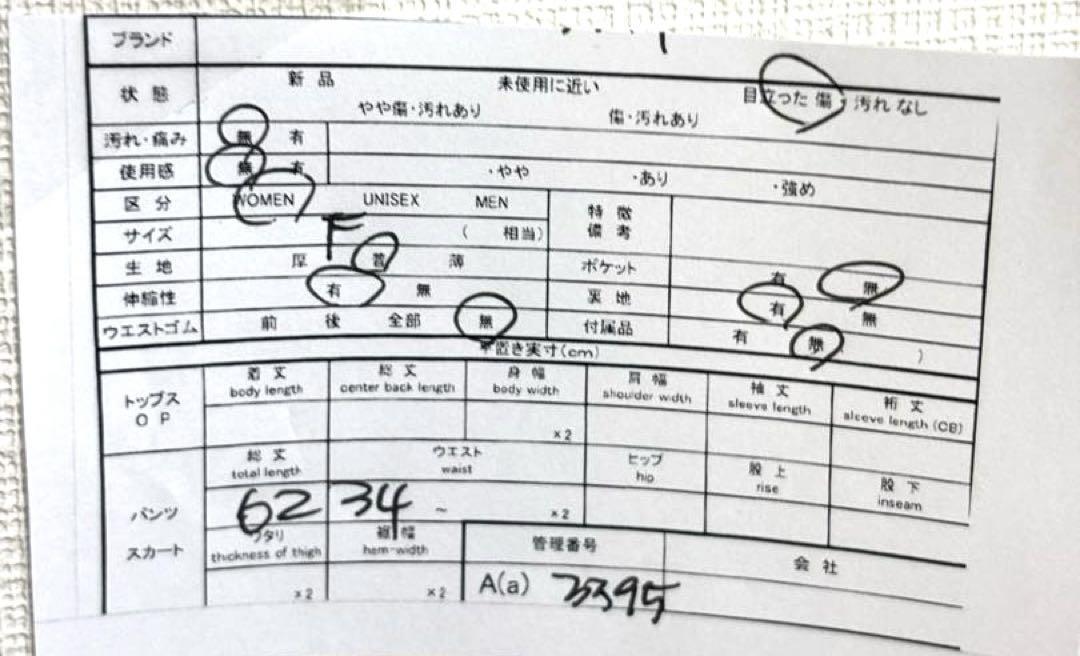 ブランド
状態 新品 未使用に近い 目立った傷・汚れなし
やや傷・汚れあり 傷・汚れあり
汚れ・痛み 無 有
使用感 無 有 ・やや ・あり ・強め
区分 WOMEN UNISEX MEN 特徴
サイズ F ( 相当) 備考
生地 厚 普 薄 ポケット 有 無
伸縮性 有 無 裏地 有 無
ウエストゴム 前 後 全部 無 付属品 有 無 )
平置き実寸(cm)
トップス 着丈 総丈 身幅 肩幅 袖丈 裄丈
OP body length center back length body width shoulder width sleeve length sleeve length (CB)
×2
総丈 ウエスト ヒップ 股上 股下
total length waist hip rise inseam
パンツ 62 34 ~ ×2
スカート ワタリ 裾幅 管理番号 会社
thickness of thigh hem-width
×2 ×2 A(a) 3395